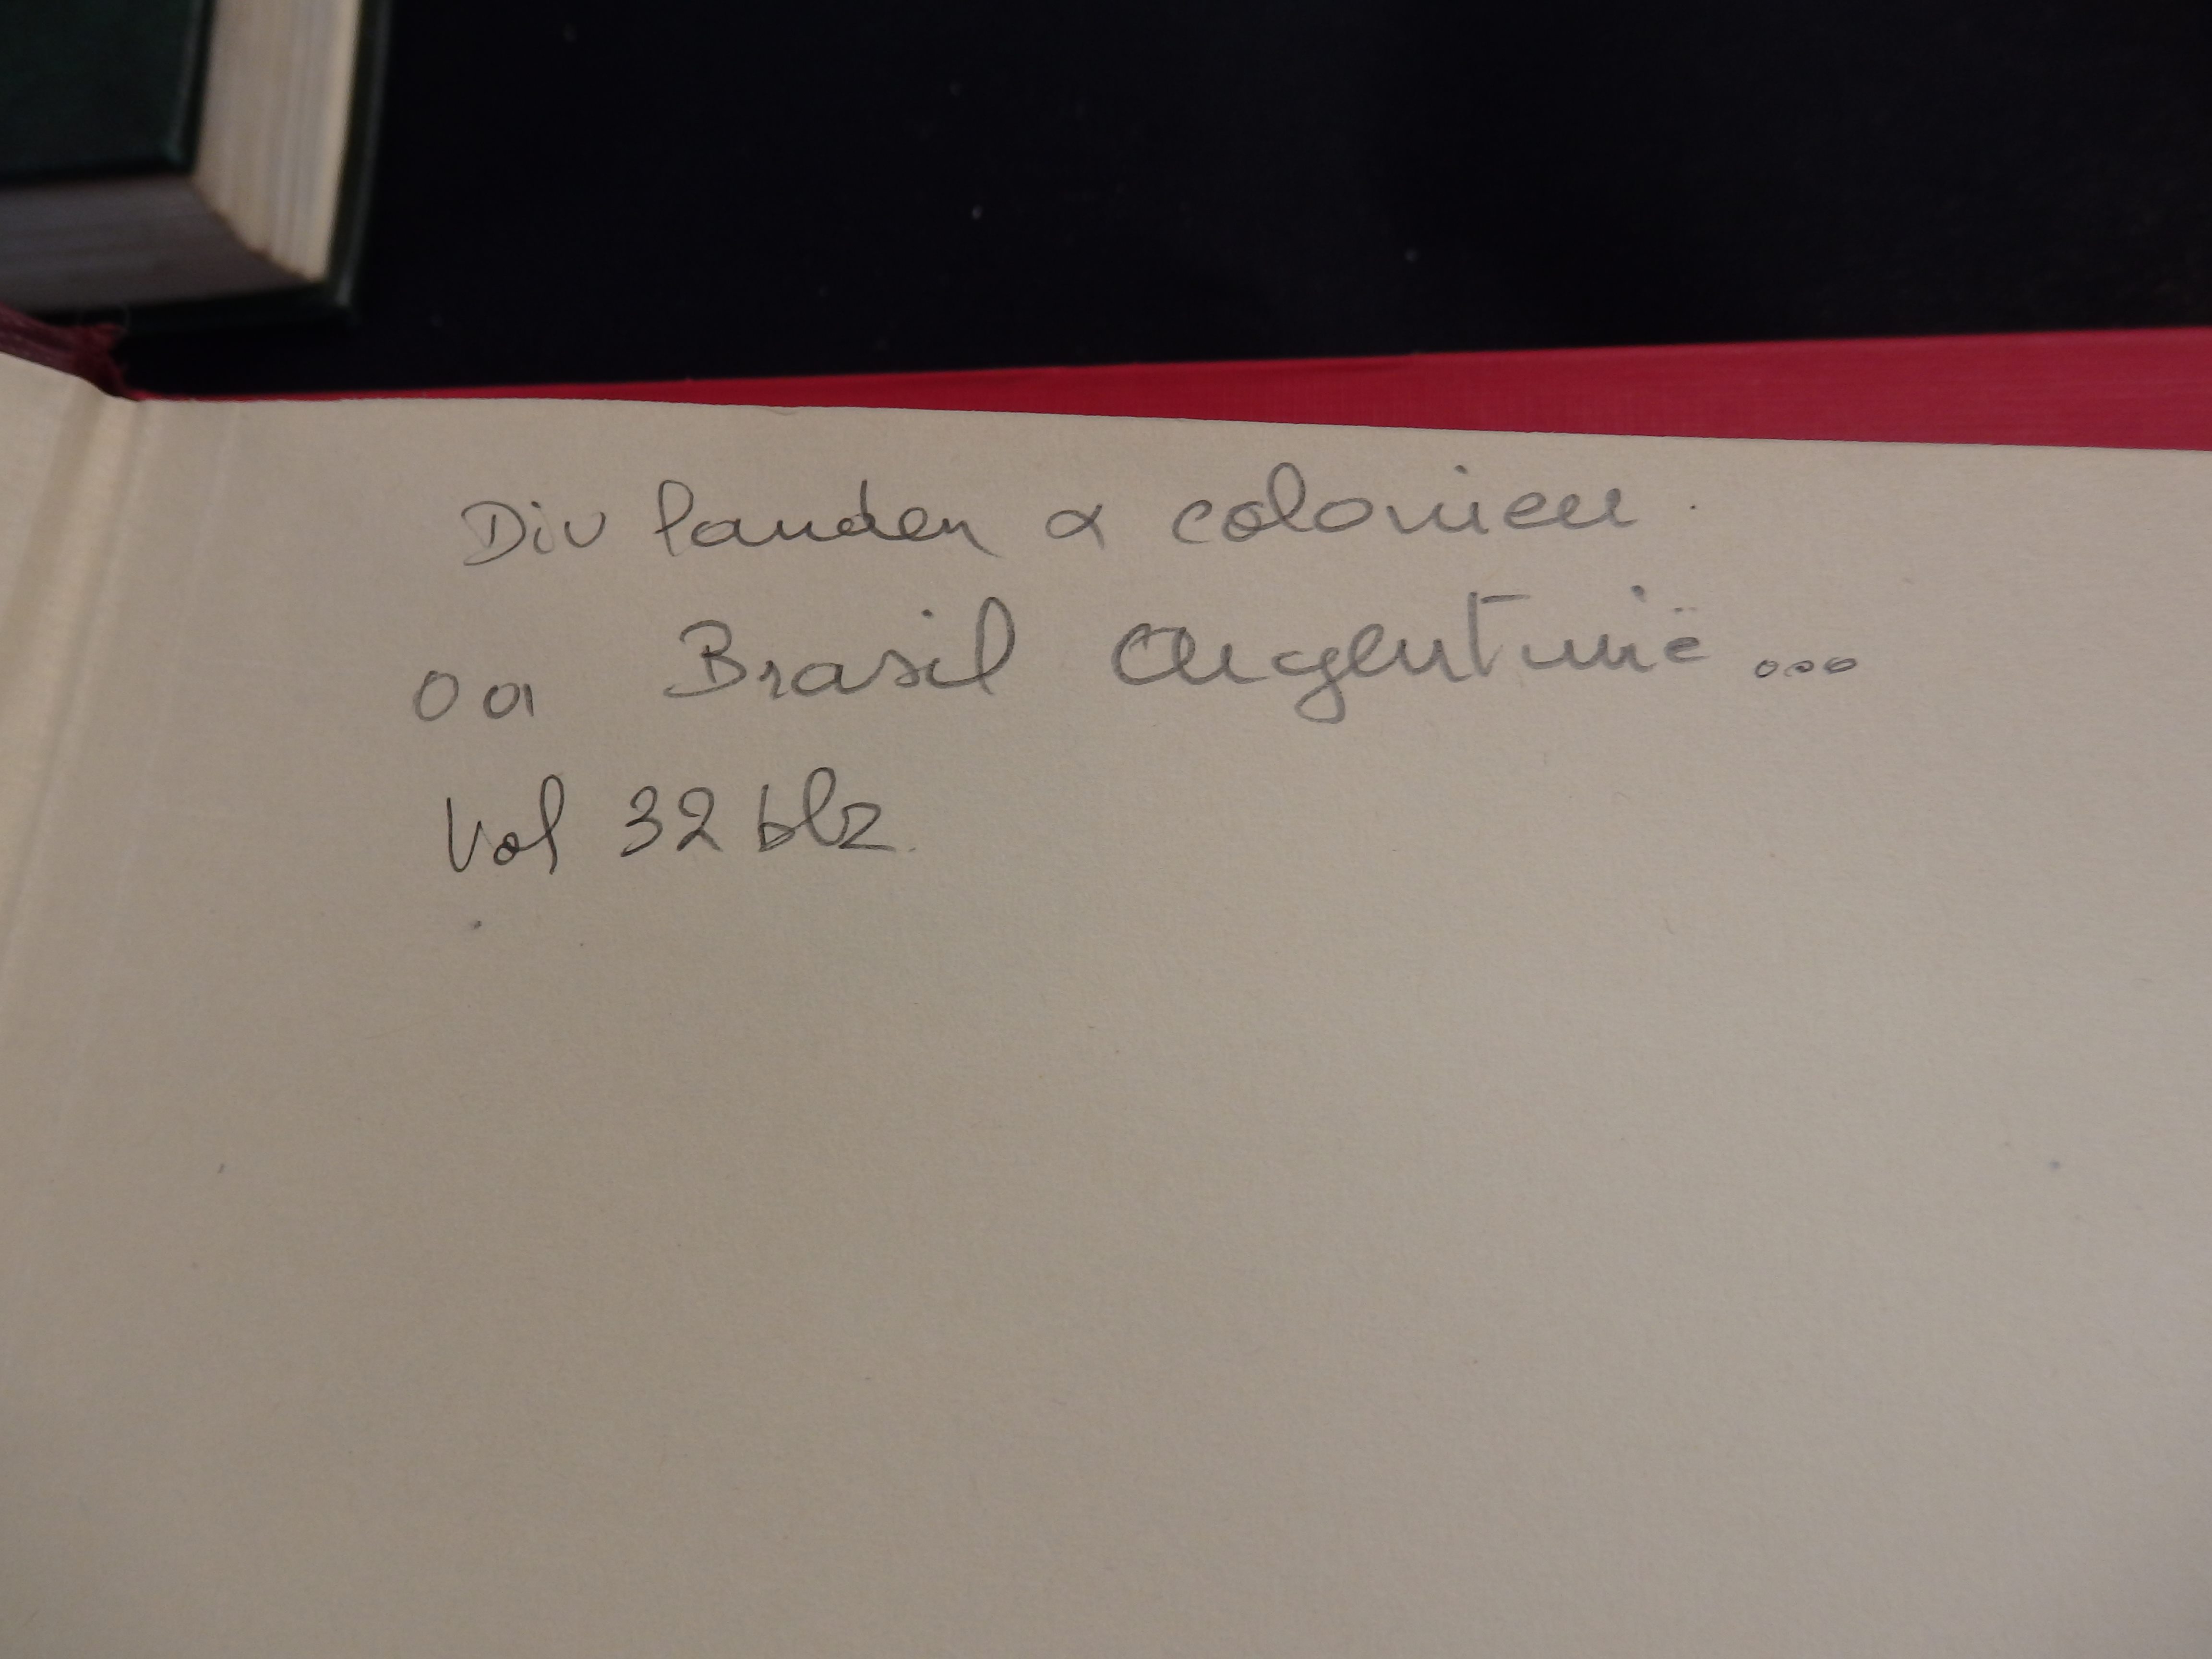 Div landen & colonien.
oa Brasil Argentinië ...
Vol 32 blz.